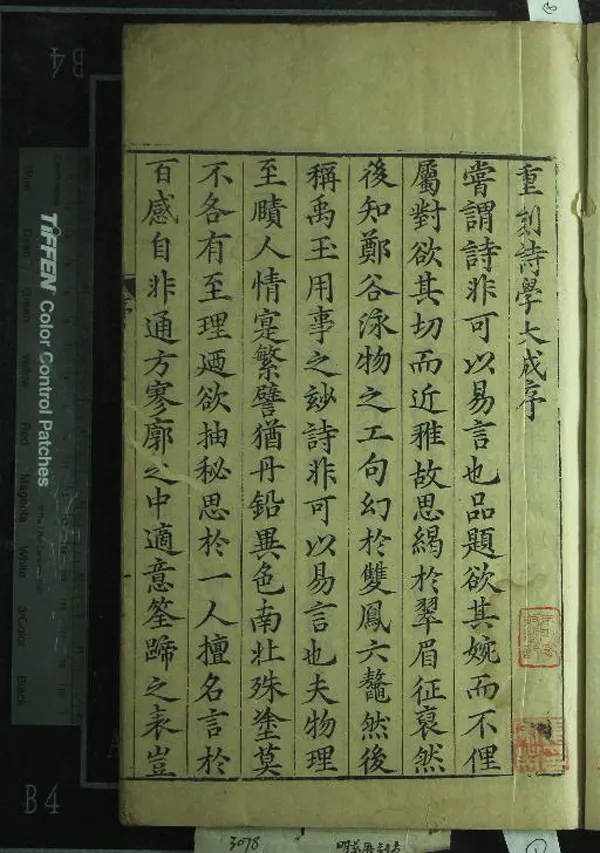 重刻詩學大成序
嘗謂詩非可以易言也品題欲其婉而不俚
屬對欲其切而近雅故思緆於翠眉征裒然
後知鄭谷泳物之工句幻於雙鳳六鼇然後
稱禹玉用事之玅詩非可以易言也夫物理
至賾人情寔繁譬猶丹鉛異色南北殊塗莫
不各有至理廼欲抽秘思於一人擅名言於
百感自非通方寥廓之中適意筌蹄之表豈
TIFFEN Color Control Patches
Blue
Cyan
Green
Yellow
Red
Magenta
White
3/Color
Black
B4
B4
3078